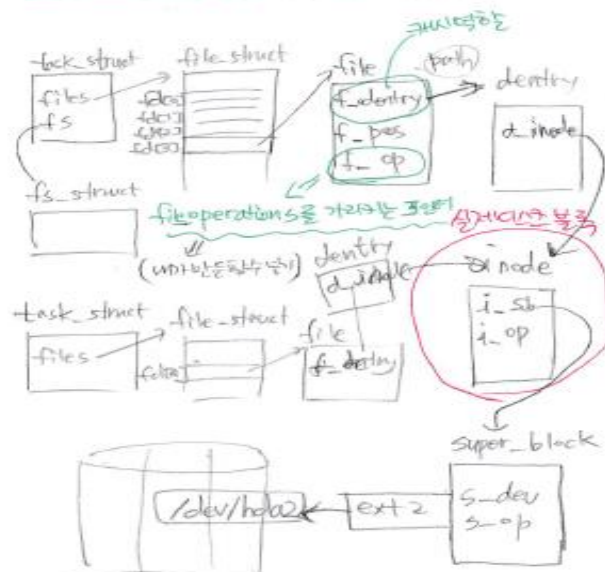 캐시역할
task_struct
file_struct
file
path
dentry
files
fs
fd[0]
fd[1]
fd[2]
fd[3]
f_dentry
f_pos
f_op
d_inode
fs_struct
file operations를 가리키는 포인터
(내가 만든 함수 넣기)
실제 디스크 블록
dentry
d_inode
inode
i_sb
i_op
task_struct
file_struct
file
files
fd[0]
f_dentry
super_block
/dev/hda2
ext2
s_dev
s_op